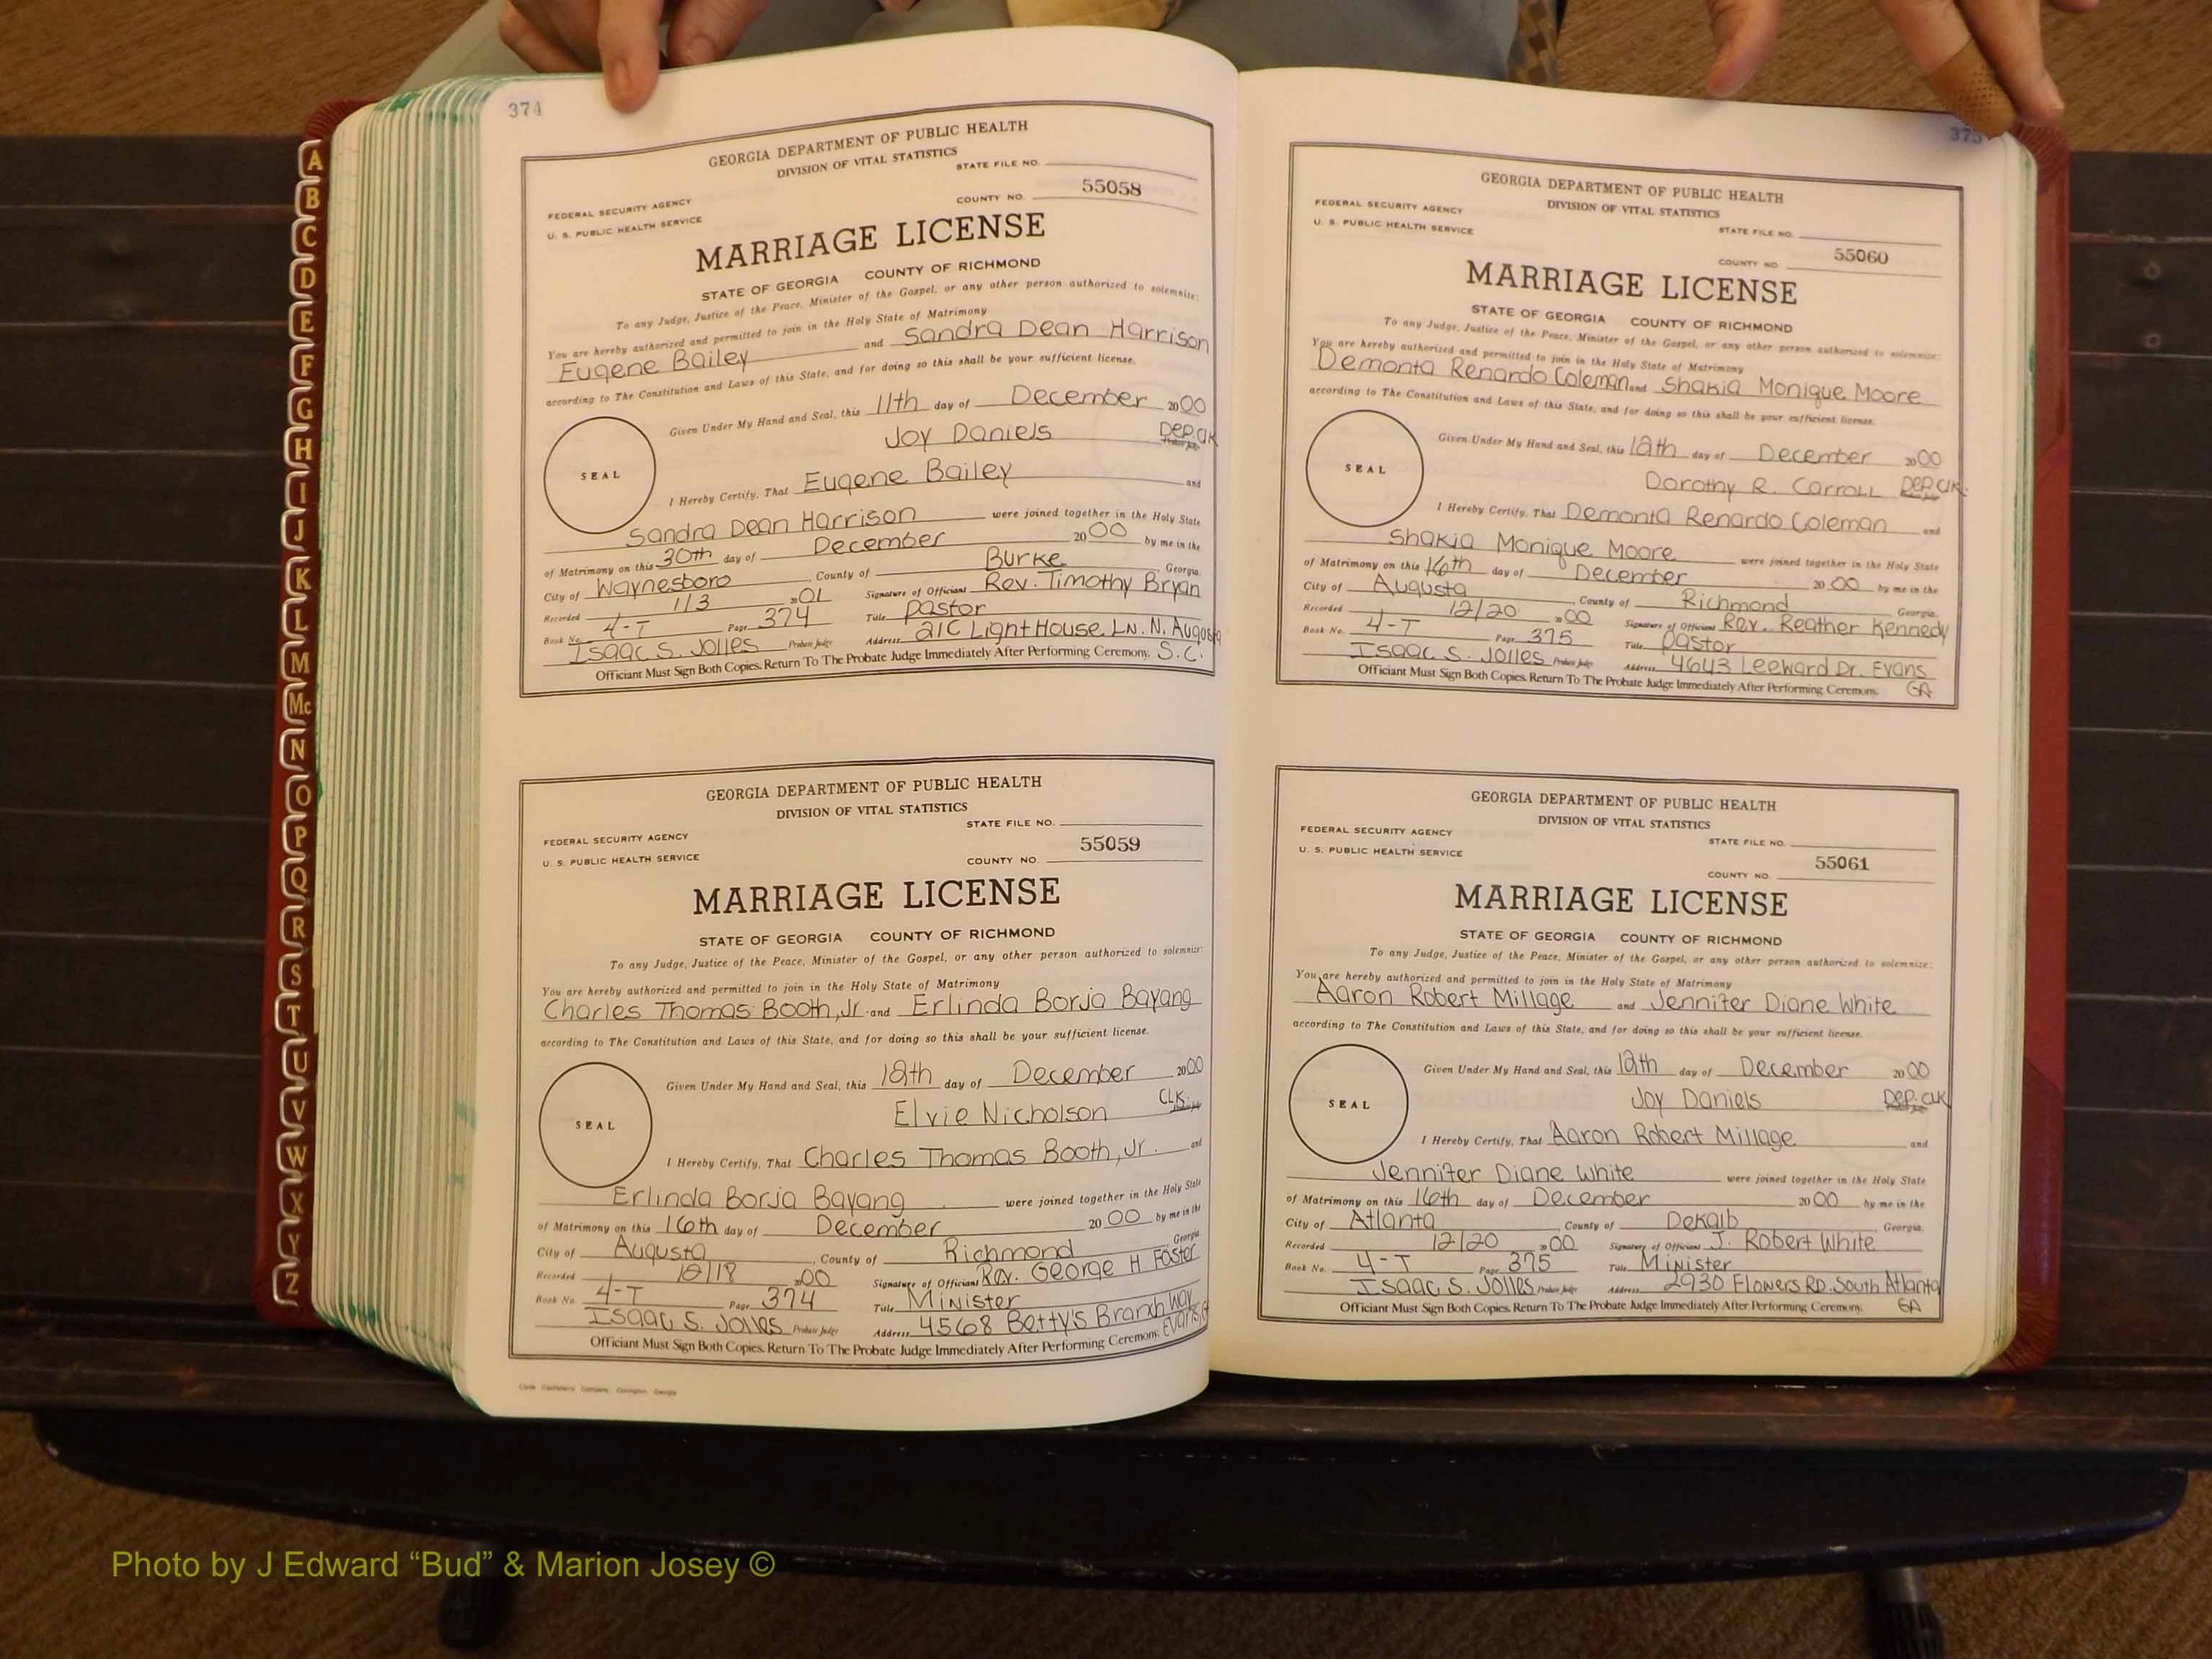 374
GEORGIA DEPARTMENT OF PUBLIC HEALTH
DIVISION OF VITAL STATISTICS
STATE FILE NO.
FEDERAL SECURITY AGENCY
COUNTY NO. 55058
U. S. PUBLIC HEALTH SERVICE
MARRIAGE LICENSE
STATE OF GEORGIA COUNTY OF RICHMOND
To any Judge, Justice of the Peace, Minister of the Gospel, or any other person authorized to solemnize:
You are hereby authorized and permitted to join in the Holy State of Matrimony
Eugene Bailey and Sandra Dean Harrison
according to The Constitution and Laws of this State, and for doing so this shall be your sufficient license.
Given Under My Hand and Seal, this 11th day of December 2000
Joy Daniels Dep. Clk
SEAL
I Hereby Certify, That Eugene Bailey and
Sandra Dean Harrison were joined together in the Holy State
of Matrimony on this 30th day of December 2000 by me in the
City of Waynesboro, County of Burke Georgia.
Recorded 1/3 2001 Signature of Officiant Rev. Timothy Bryan
Book No. 4-T Page 374 Title Pastor
Isaac S. Jolles Probate Judge Address 21C Light House Ln. N. Augusta
Officiant Must Sign Both Copies. Return To The Probate Judge Immediately After Performing Ceremony. S.C.
GEORGIA DEPARTMENT OF PUBLIC HEALTH
DIVISION OF VITAL STATISTICS
STATE FILE NO.
FEDERAL SECURITY AGENCY
55059
U. S. PUBLIC HEALTH SERVICE
COUNTY NO.
MARRIAGE LICENSE
STATE OF GEORGIA COUNTY OF RICHMOND
To any Judge, Justice of the Peace, Minister of the Gospel, or any other person authorized to solemnize:
You are hereby authorized and permitted to join in the Holy State of Matrimony
Charles Thomas Booth, Jr. and Erlinda Borja Bayang
according to The Constitution and Laws of this State, and for doing so this shall be your sufficient license.
Given Under My Hand and Seal, this 12th day of December 2000
Elvie Nicholson CLK.
SEAL
I Hereby Certify, That Charles Thomas Booth, Jr. and
Erlinda Borja Bayang were joined together in the Holy State
of Matrimony on this 16th day of December 2000 by me in the
City of Augusta, County of Richmond Georgia.
Recorded 12/18 2000 Signature of Officiant Rev. George H Foster
Book No. 4-T Page 374 Title Minister
Isaac S. Jolles Probate Judge Address 4568 Betty's Branch Way
Officiant Must Sign Both Copies. Return To The Probate Judge Immediately After Performing Ceremony. Evans,
375
GEORGIA DEPARTMENT OF PUBLIC HEALTH
DIVISION OF VITAL STATISTICS
FEDERAL SECURITY AGENCY
STATE FILE NO.
U. S. PUBLIC HEALTH SERVICE
COUNTY NO. 55060
MARRIAGE LICENSE
STATE OF GEORGIA COUNTY OF RICHMOND
To any Judge, Justice of the Peace, Minister of the Gospel, or any other person authorized to solemnize:
You are hereby authorized and permitted to join in the Holy State of Matrimony
Demonta Renardo Coleman and Shakia Monique Moore
according to The Constitution and Laws of this State, and for doing so this shall be your sufficient license.
Given Under My Hand and Seal, this 12th day of December 2000
Dorothy R. Carroll Dep. Clk.
SEAL
I Hereby Certify, That Demonta Renardo Coleman and
Shakia Monique Moore were joined together in the Holy State
of Matrimony on this 16th day of December 2000 by me in the
City of Augusta, County of Richmond Georgia.
Recorded 12/20 2000 Signature of Officiant Rev. Reather Kennedy
Book No. 4-T Page 375 Title Pastor
Isaac S. Jolles Probate Judge Address 4643 Leeward Dr. Evans
Officiant Must Sign Both Copies. Return To The Probate Judge Immediately After Performing Ceremony. GA
GEORGIA DEPARTMENT OF PUBLIC HEALTH
DIVISION OF VITAL STATISTICS
FEDERAL SECURITY AGENCY
STATE FILE NO.
U. S. PUBLIC HEALTH SERVICE
55061
COUNTY NO.
MARRIAGE LICENSE
STATE OF GEORGIA COUNTY OF RICHMOND
To any Judge, Justice of the Peace, Minister of the Gospel, or any other person authorized to solemnize:
You are hereby authorized and permitted to join in the Holy State of Matrimony
Aaron Robert Millage and Jennifer Diane White
according to The Constitution and Laws of this State, and for doing so this shall be your sufficient license.
Given Under My Hand and Seal, this 12th day of December 2000
Joy Daniels Dep. Clk
SEAL
I Hereby Certify, That Aaron Robert Millage and
Jennifer Diane White were joined together in the Holy State
of Matrimony on this 16th day of December 2000 by me in the
City of Atlanta, County of DeKalb Georgia.
Recorded 12/20 2000 Signature of Officiant J. Robert White
Book No. 4-T Page 375 Title Minister
Isaac S. Jolles Probate Judge Address 2930 Flowers RD. South Atlanta
Officiant Must Sign Both Copies. Return To The Probate Judge Immediately After Performing Ceremony. GA
A
B
C
D
E
F
G
H
I
J
K
L
M
Mc
N
O
P
Q
R
S
T
U
V
W
X
Y
Z
Photo by J Edward “Bud” & Marion Josey ©